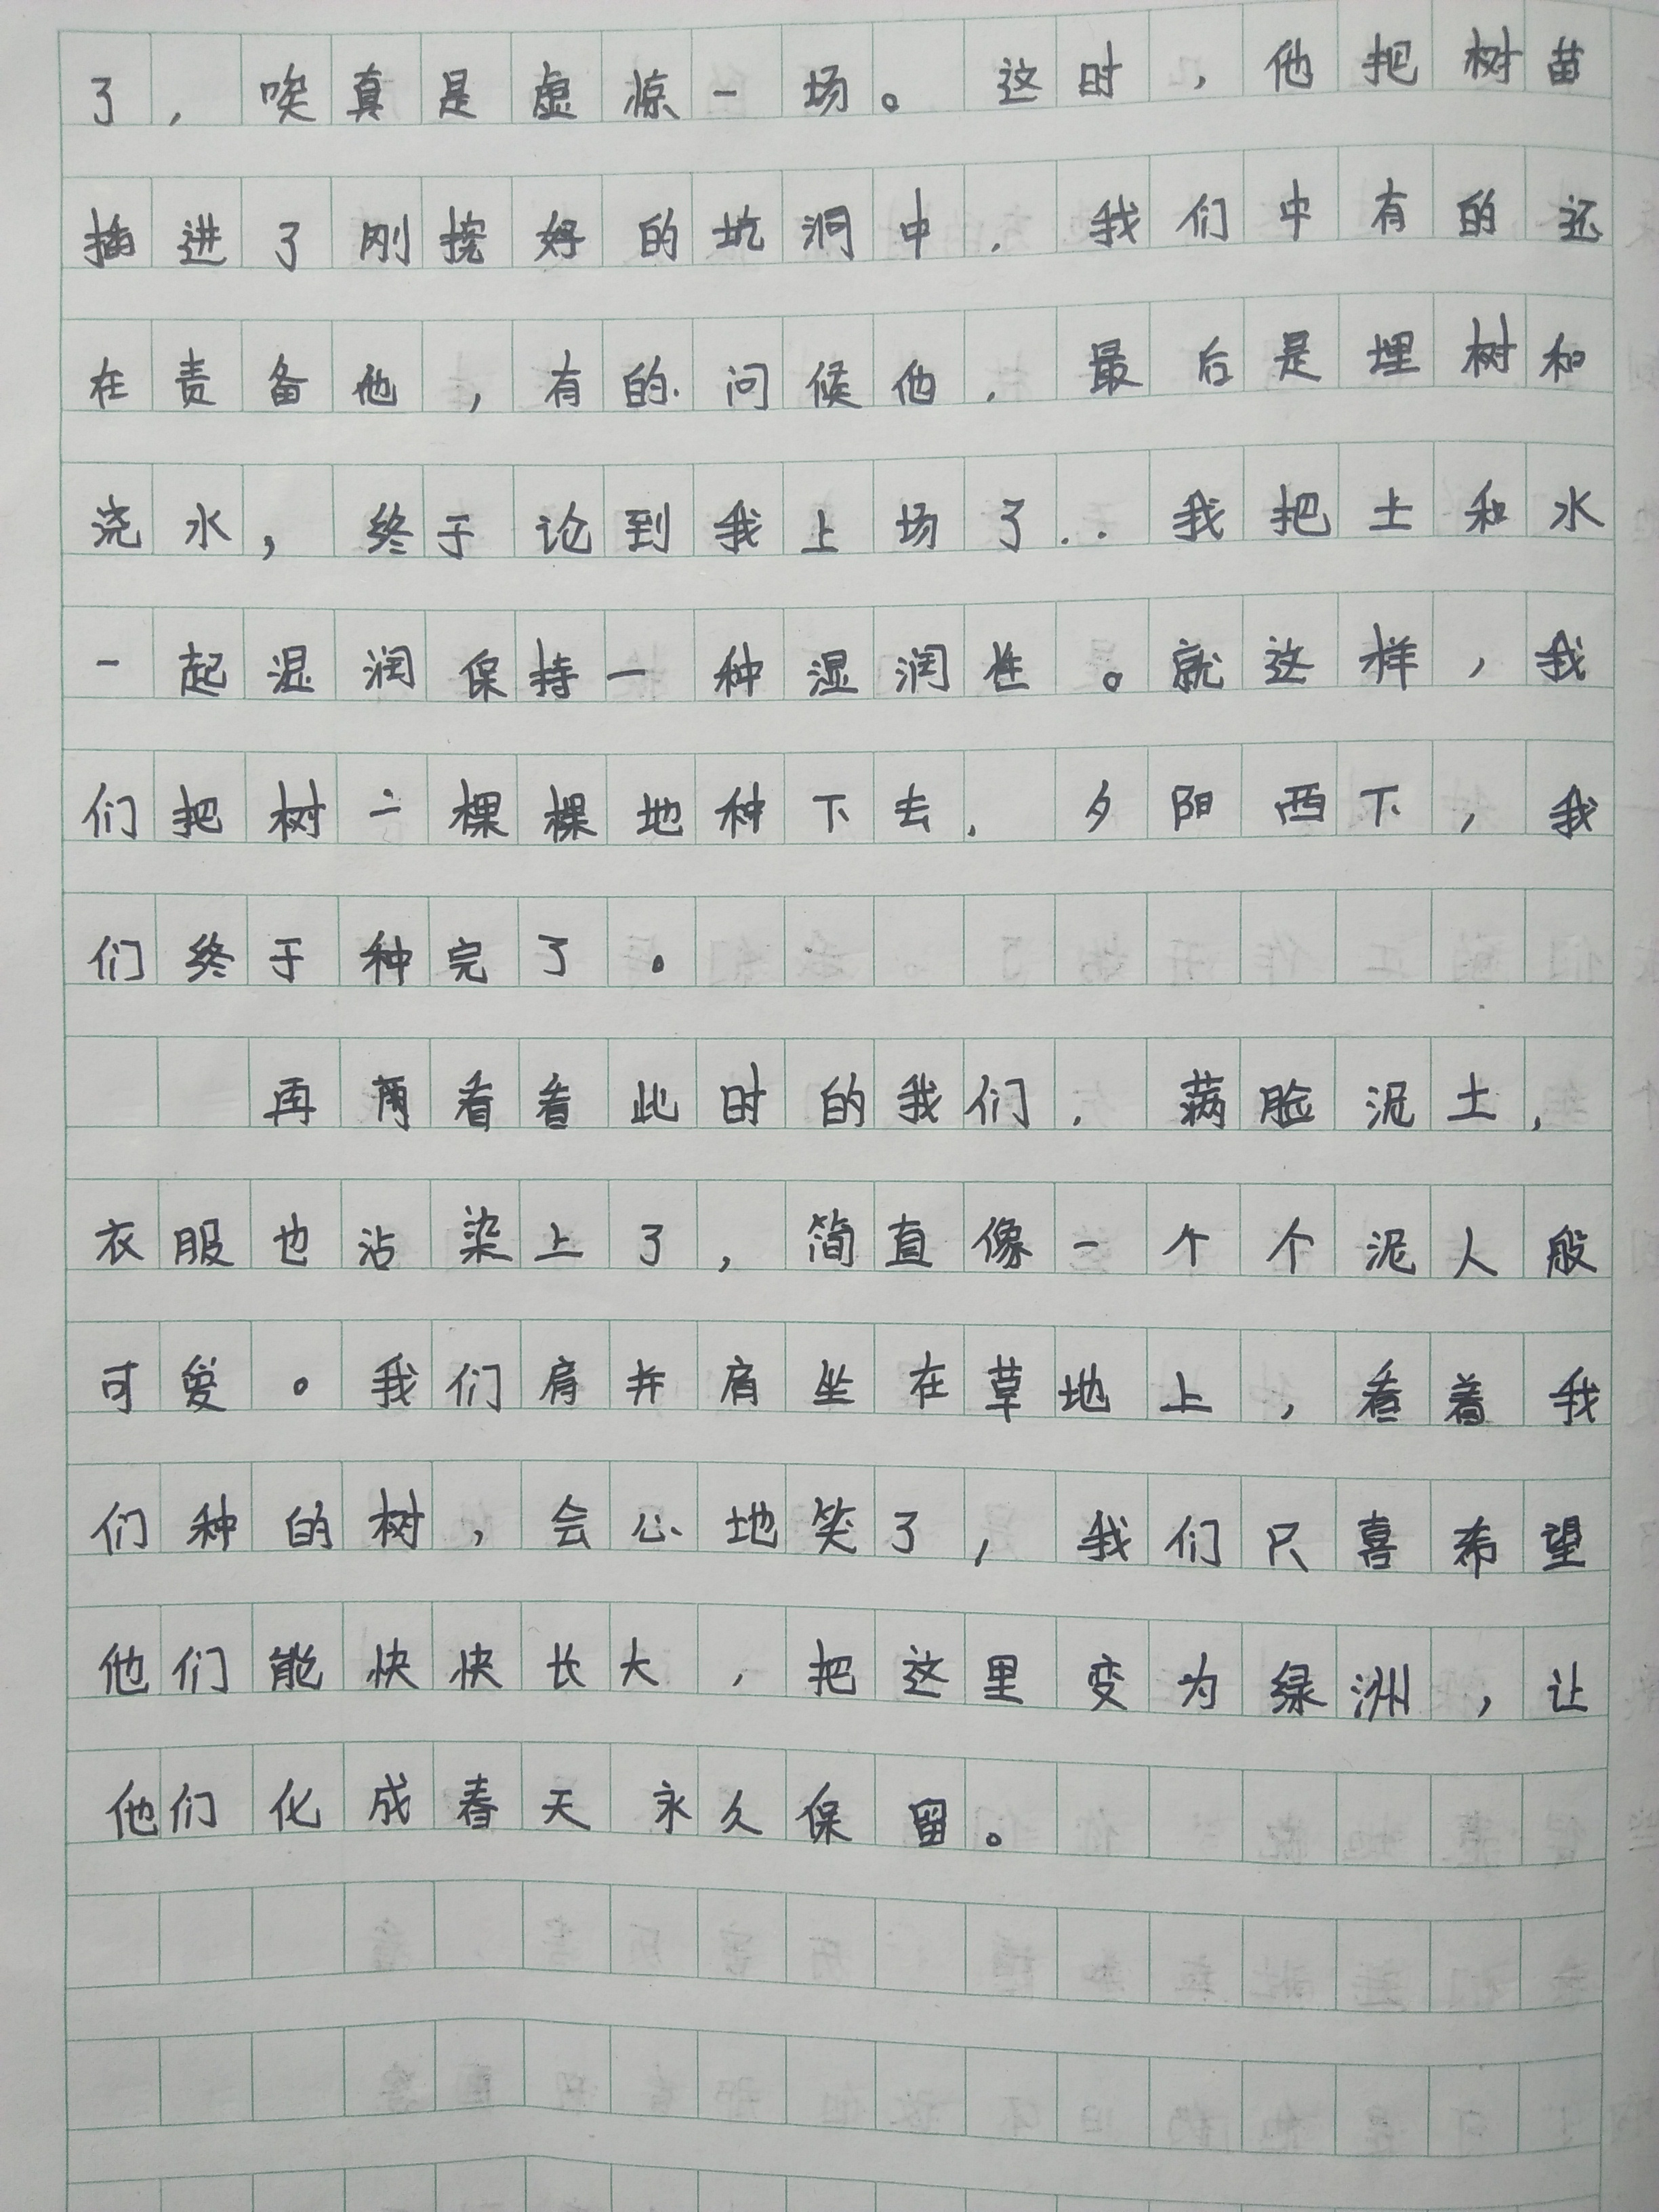 了，唉真是虚惊一场。这时，他把树苗
插进了刚挖好的坑洞中．我们中有的还
在责备他，有的问候他．最后是埋树和
浇水，终于论到我上场了．．我把土和水
一起湿润保持一种湿润性。就这样，我
们把树一棵棵地种下去．夕阳西下，我
们终于种完了。
再看看此时的我们．满脸泥土，
衣服也沾染上了，简直像一个个泥人般
可爱。我们肩并肩坐在草地上，看着我
们种的树，会心地笑了，我们只喜希望
他们能快快长大，把这里变为绿洲，让
他们化成春天永久保留。